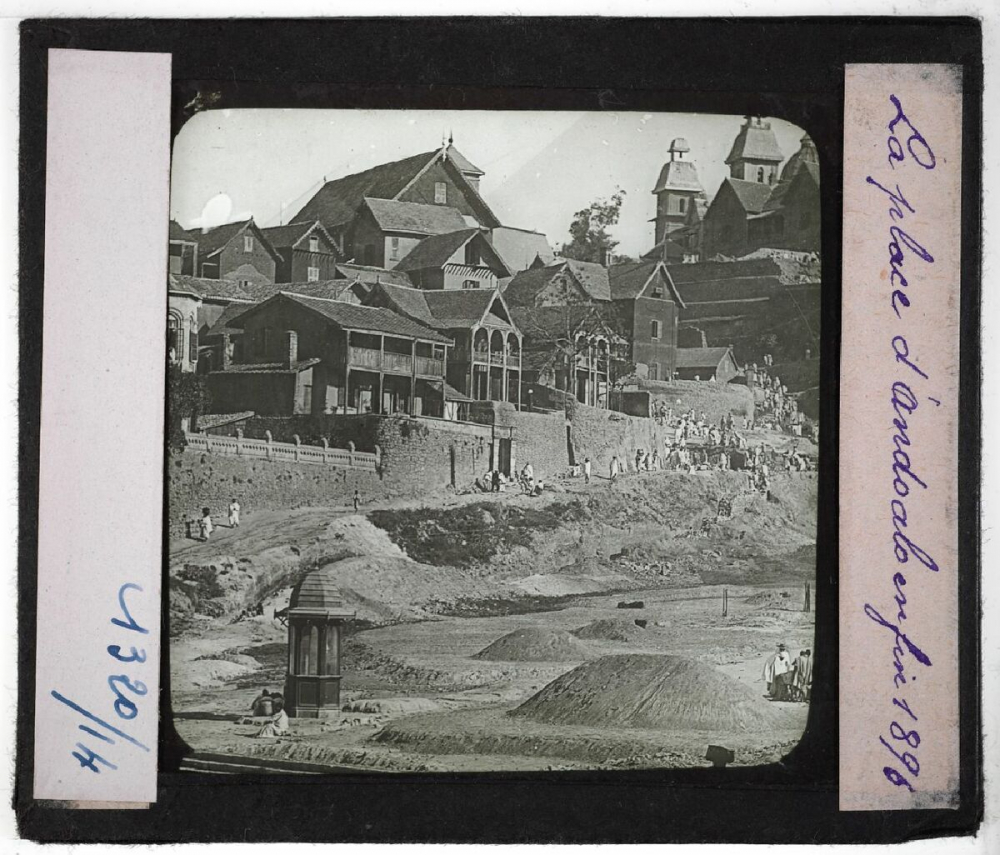 4320/14
La place d'Andoalo en fin 1898